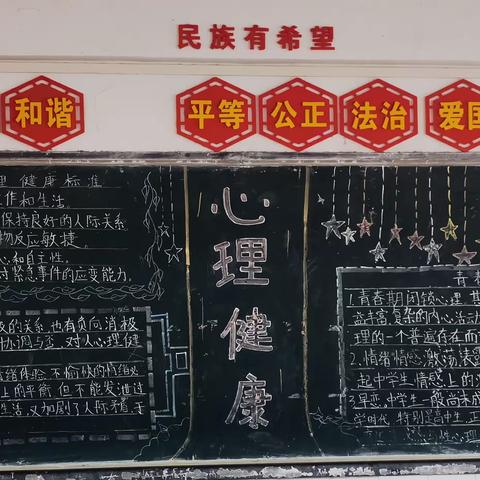 民族有希望
和谐
平等
公正
法治
爱国
理健康标准
工作和生活
保持良好的人际关系
物反应敏捷。
心和自主性。
对紧急事件的应变能力。
极的关系也有负向消极
协调与否,对人心理健
绪体验不愉快的情绪必
上的平衡但不能发泄过
生活,又加剧了人际矛盾于
心理健康
青春
1.青春期闭锁心理其
益丰富复杂的内心活动
理的一个普遍存在而
2.情绪情感激荡表露
起中学生情感上的
3.早恋,中学生一般尚未成
学时代特别是高中生,正
性心理